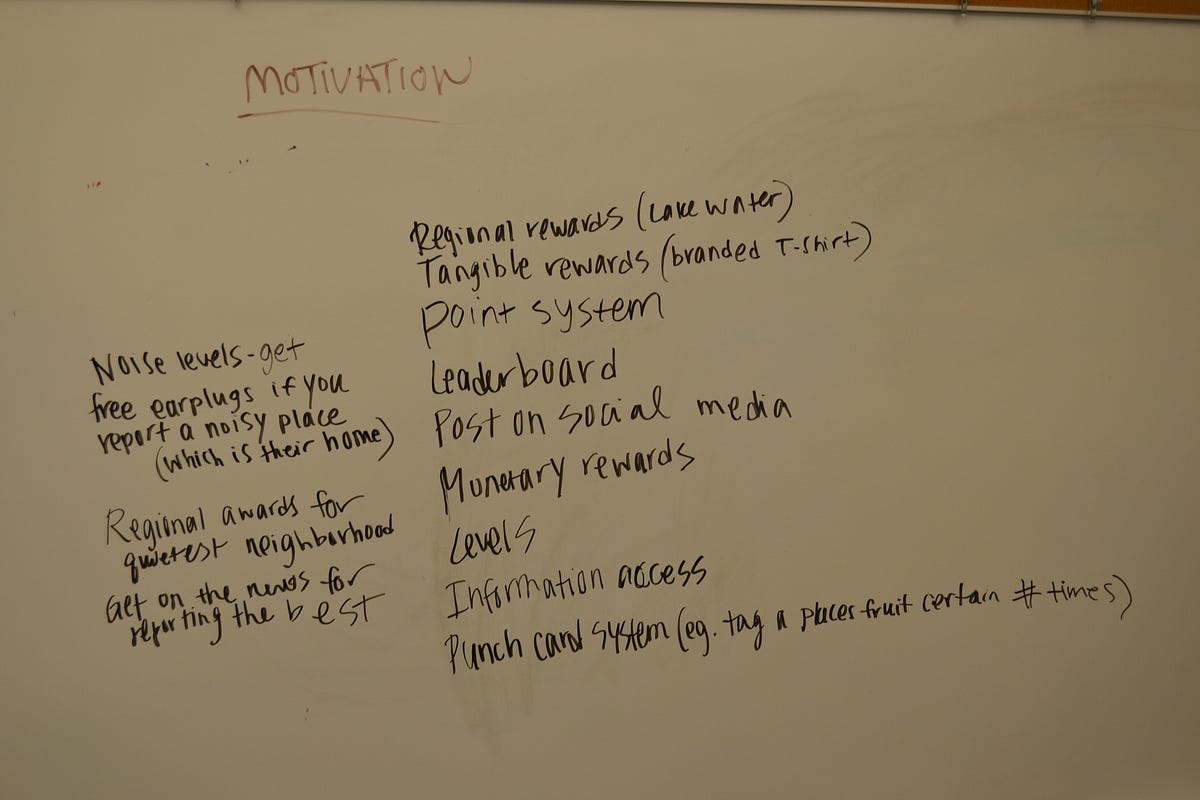 MOTIVATION
Regional rewards (Lake water)
Tangible rewards (branded T-shirt)
Point system
Leaderboard
Post on social media
Monetary rewards
Levels
Information access
Punch card system (eg. tag a places fruit certain # times)
Noise levels - get
free earplugs if you
report a noisy place
(which is their home)
Regional awards for
quietest neighborhood
Get on the news for
reporting the best